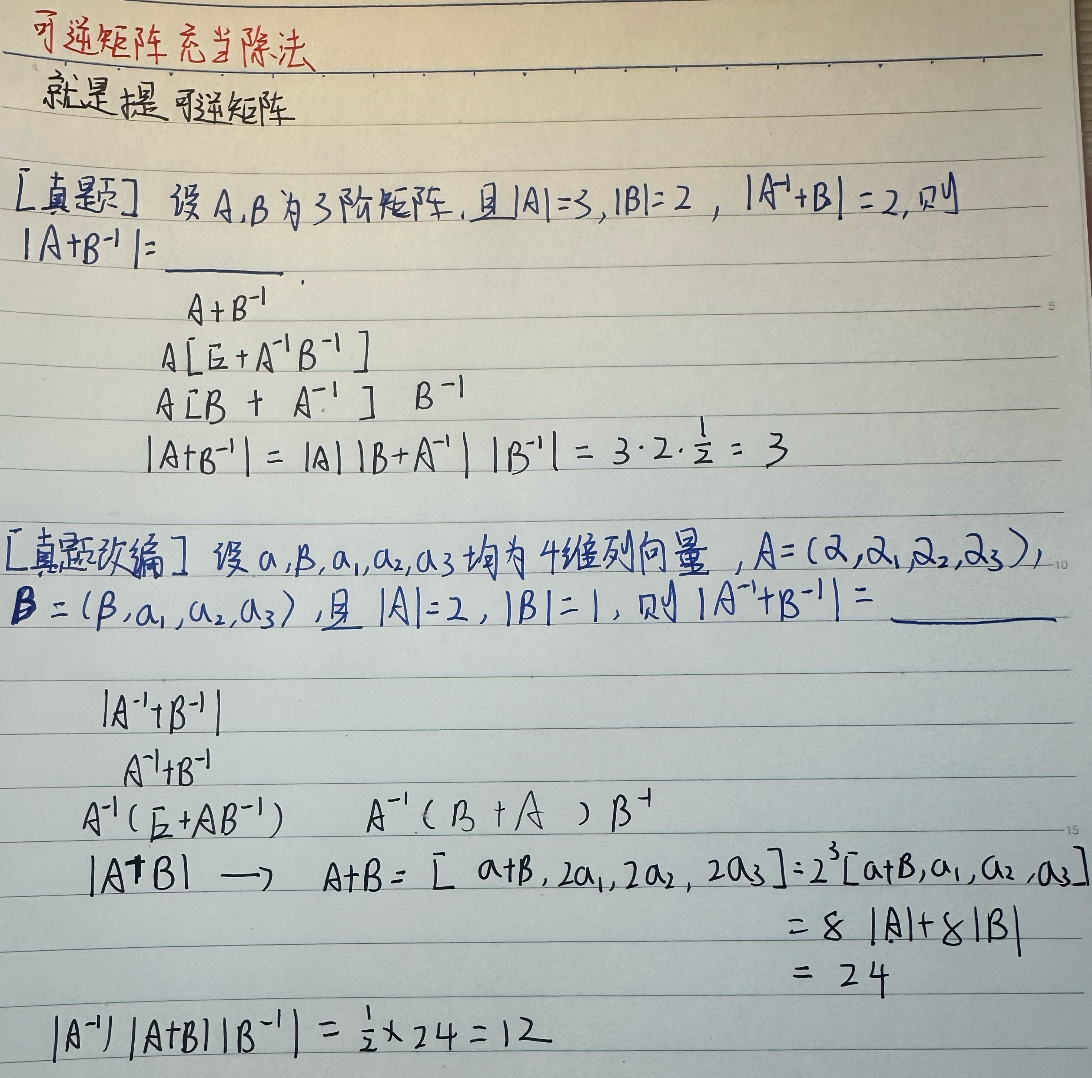 可逆矩阵充当除法
就是提可逆矩阵
[真题] 设A,B为3阶矩阵,且|A|=3,|B|=2, |A⁻¹+B|=2,则
|A+B⁻¹|=____
A+B⁻¹
A[E+A⁻¹B⁻¹]
A[B + A⁻¹] B⁻¹
|A+B⁻¹| = |A| |B+A⁻¹| |B⁻¹| = 3·2·1/2 = 3
5
[真题改编] 设α,β,α₁,α₂,α₃均为4维列向量, A=(α,α₁,α₂,α₃),
10
B=(β,α₁,α₂,α₃),且|A|=2,|B|=1,则|A⁻¹+B⁻¹|=____
|A⁻¹+B⁻¹|
A⁻¹+B⁻¹
A⁻¹(E+AB⁻¹) A⁻¹(B+A)B⁻¹
15
|A+B| → A+B=[α+β,2α₁,2α₂,2α₃]=2³[α+β,α₁,α₂,α₃]
= 8 |A|+8|B|
= 24
|A⁻¹| |A+B| |B⁻¹| = 1/2×24=12